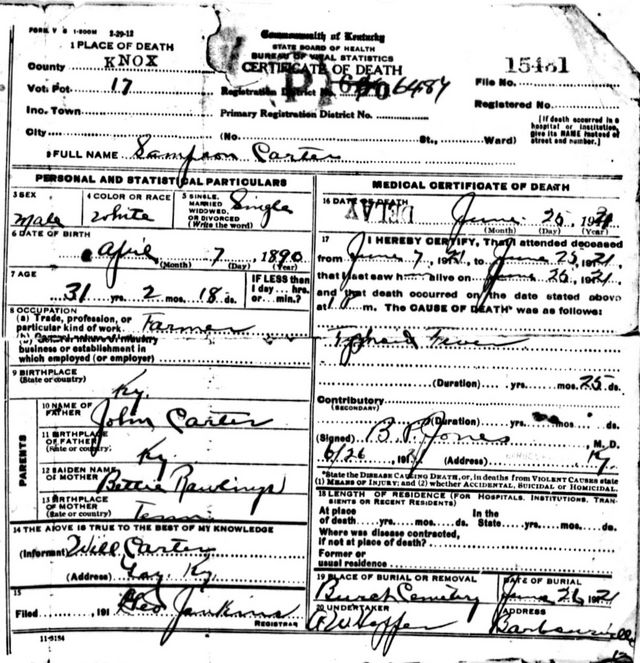 FORM V S 1-500M 2-29-12
Commonwealth of Kentucky
STATE BOARD OF HEALTH
BUREAU OF VITAL STATISTICS
CERTIFICATE OF DEATH
1 PLACE OF DEATH
County KNOX
Vot. Pct. 17
Inc. Town
City
Registration District No. 6487
Primary Registration District No.
(No. St., Ward)
File No. 15481
Registered No.
[If death occurred in a hospital or institution, give its NAME instead of street and number.]
2 FULL NAME Sampson Carter
PERSONAL AND STATISTICAL PARTICULARS
3 SEX Male
4 COLOR OR RACE White
5 SINGLE, MARRIED WIDOWED, OR DIVORCED (Write the word) Single
6 DATE OF BIRTH
April 7, 1890
(Month) (Day) (Year)
7 AGE
31 yrs. 2 mos. 18 ds.
IF LESS than 1 day ... hrs. or ... min.?
8 OCCUPATION
(a) Trade, profession, or particular kind of work Farmer
business or establishment in which employed (or employer)
9 BIRTHPLACE (State or country) Ky.
PARENTS
10 NAME OF FATHER John Carter
11 BIRTHPLACE OF FATHER (State or country) Ky
12 MAIDEN NAME OF MOTHER Bettie Rawlings
13 BIRTHPLACE OF MOTHER (State or country) Tenn
14 THE ABOVE IS TRUE TO THE BEST OF MY KNOWLEDGE
(Informant) Will Carter
(Address) Gay, Ky.
15
Filed, 191 Geo Jenkins
REGISTRAR
11-3184
MEDICAL CERTIFICATE OF DEATH
16 DATE OF DEATH
DELAY
June 25, 1921
(Month) (Day) (Year)
17 I HEREBY CERTIFY, That I attended deceased
from June 7, 1921, to June 25, 1921,
that I last saw h alive on June 25, 1921,
and that death occurred on the date stated above
at 1 m. The CAUSE OF DEATH* was as follows:
Typhoid Fever
(Duration) yrs. mos. 25 ds.
Contributory
(SECONDARY)
(Duration) yrs. mos. ds.
(Signed) B. P. Jones, M. D.
6/26, 1921 (Address) Ky.
*State the DISEASE CAUSING DEATH, or, in deaths from VIOLENT CAUSES state
(1) MEANS OF INJURY; and (2) whether ACCIDENTAL, SUICIDAL or HOMICIDAL.
18 LENGTH OF RESIDENCE (FOR HOSPITALS, INSTITUTIONS, TRANSIENTS OR RECENT RESIDENTS)
At place of death yrs. mos. ds. In the State yrs. mos. ds.
Where was disease contracted, if not at place of death?
Former or usual residence
19 PLACE OF BURIAL OR REMOVAL
Burch Cemetery
DATE OF BURIAL
June 26, 1921
20 UNDERTAKER
ADDRESS
Barbourville